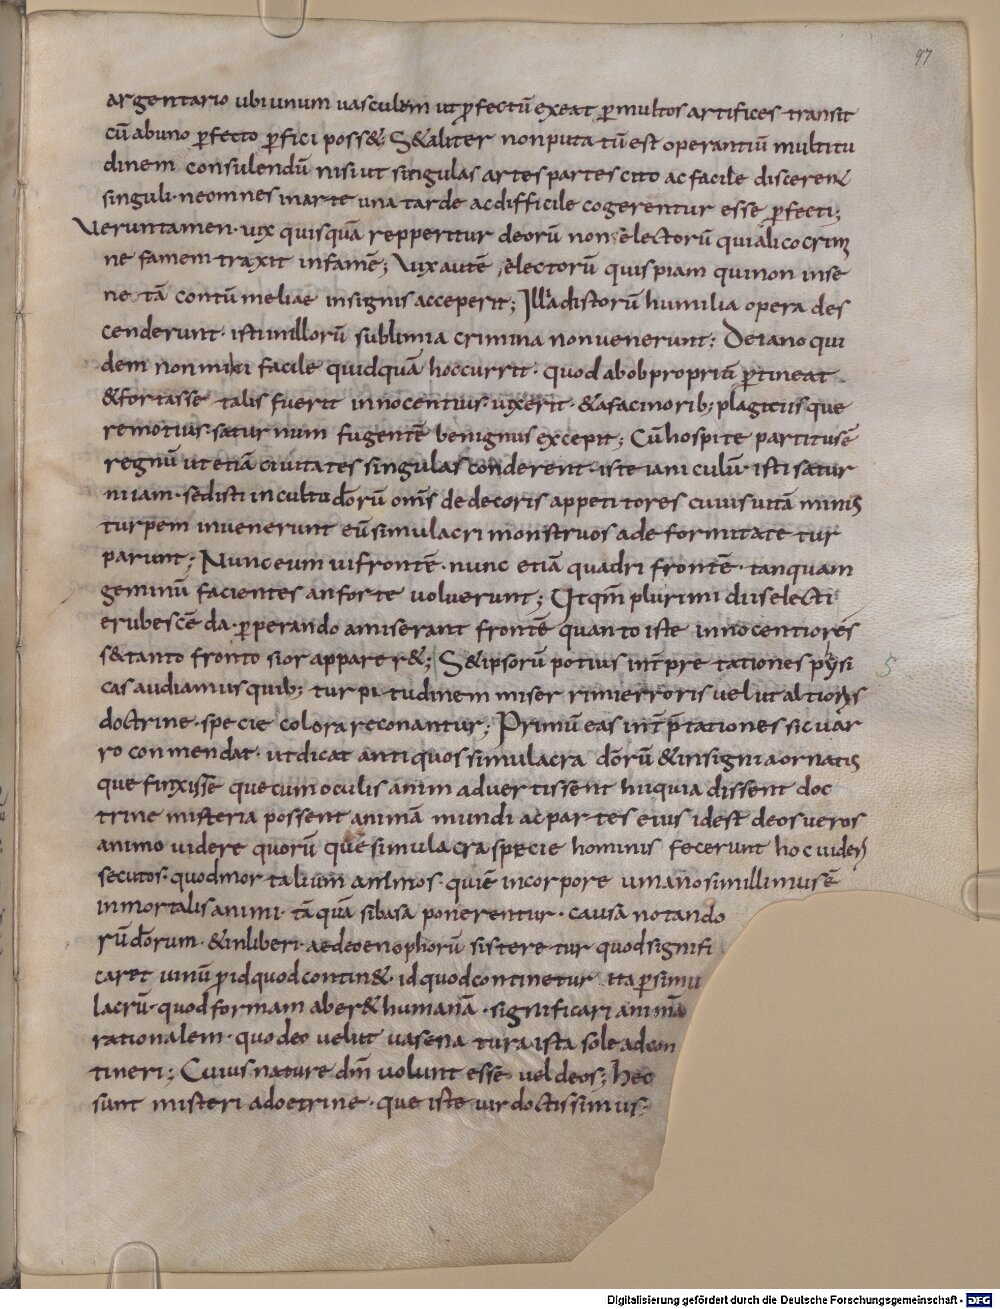 97
argentario ubi unum vasculum ut p̱fectū exeat p̱ multos artifices transit
cū ab uno p̱fecto p̱fici poss&; S& aliter non putatū est operantiū multitu
dinem consulendū nisi ut singulas artes partes cito ac facile discerent
singuli· ne omnes in arte una tarde ac difficile cogerentur esse p̱fecti;
Veruntamen· vix quisquā repperitur deorū non selectorū qui alico crim
ne famem traxit infamē; Vix autē selectorū quispiam qui non in se
ne tā contūmeliae insignis acceperit; Illa distorū humilia opera des
cenderunt· isti in illorū sublimia crimina non venerunt; De iano qui
dem non mihi facile quidquā hoccurrit· quod ab obpropriū p̱tineat·
& fortasse talis fuerit innocentius· vixerit· & a facinorib; plagitiis que
remotius· saturnum fugentē benignus excepit; Cū hospite partitus ē
regnū ut etiā civitates singulas conderent· iste ianiculū· isti satur
niam· sed isti in cultu dōrū om̄s dedecoris appetitores cuius vitā minus
turpem invenerunt eū simulacri monstruosa deformitate tur
parunt; Nunc eum vifrontē· nunc etiā quadrifrontē· tanquam
geminū facientes an forte voluerunt; Ut qm̄ plurimi dii selecti
erubescēda· p̱perando amiserant frontē quanto iste innocentiores
s& tanto frontosior apparer&; S& ipsorū potius int̄pretationes pysi
cas audiamus quib; turpitudinem miserrimi erroris velut altioris
doctrine· specie colorare conantur; Primū eas int̄p̄tationes sic var
ro conmendat· ut dicat antiquos simulacra dōrū & insignia ornatus
que finxisse que cum oculis anim advertissent hii qui adissent doc
trine misteria possent animā mundi ac partes eius id est deos veros
animo videre quorū que simulacra specie hominis fecerunt hoc videri
secutos· quod mortalium animos· qui ē in corpore umano simillimus ē
inmortalis animi· tā quā si basa ponerentur· causa notando
rū dōrum· & in liberi· aede oenophorū sisteretur quod signifi
caret vinū p̱ id quod contin&· id quod continetur ita p̱ simu
lacrū· quod formam aber& humanā· significari animā
rationalem· quo deo velut vase natura ista sole ad con
tineri; Cuius nature dm̄ volunt esse vel deos; hec
sunt misteria doctrine· que iste vir doctissimus·
5
Digitalisierung gefördert durch die Deutsche Forschungsgemeinschaft - DFG